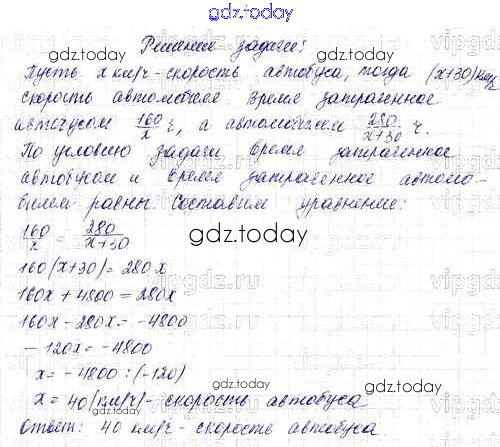 gdz.today
Решение задачи:
Пусть x км/ч - скорость автобуса, тогда (x+30) км/ч
скорость автомобиля. Время затраченное
автобусом 160/x ч, а автомобилем 280/x+30 ч.
По условию задачи время затраченное
автобусом и время затраченное автомо-
билем равны. Составим уравнение:
160/x = 280/x+30
160(x+30) = 280x
160x + 4800 = 280x
160x - 280x = -4800
- 120x = -4800
x = -4800 : (-120)
x = 40 (км/ч) - скорость автобуса
Ответ: 40 км/ч - скорость автобуса
gdz.today
gdz.today
gdz.today
gdz.today
gdz.today
gdz.today
gdz.today